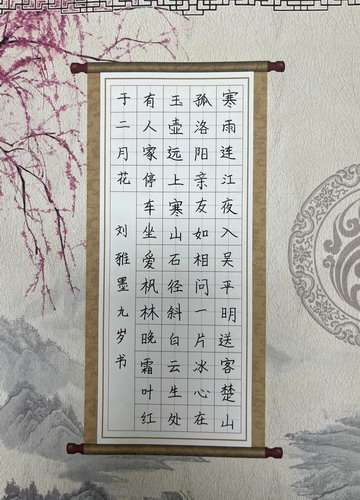 寒雨连江夜入吴平明送客楚山
孤洛阳亲友如相问一片冰心在
玉壶远上寒山石径斜白云生处
有人家停车坐爱枫林晚霜叶红
于二月花 刘雅墨九岁书